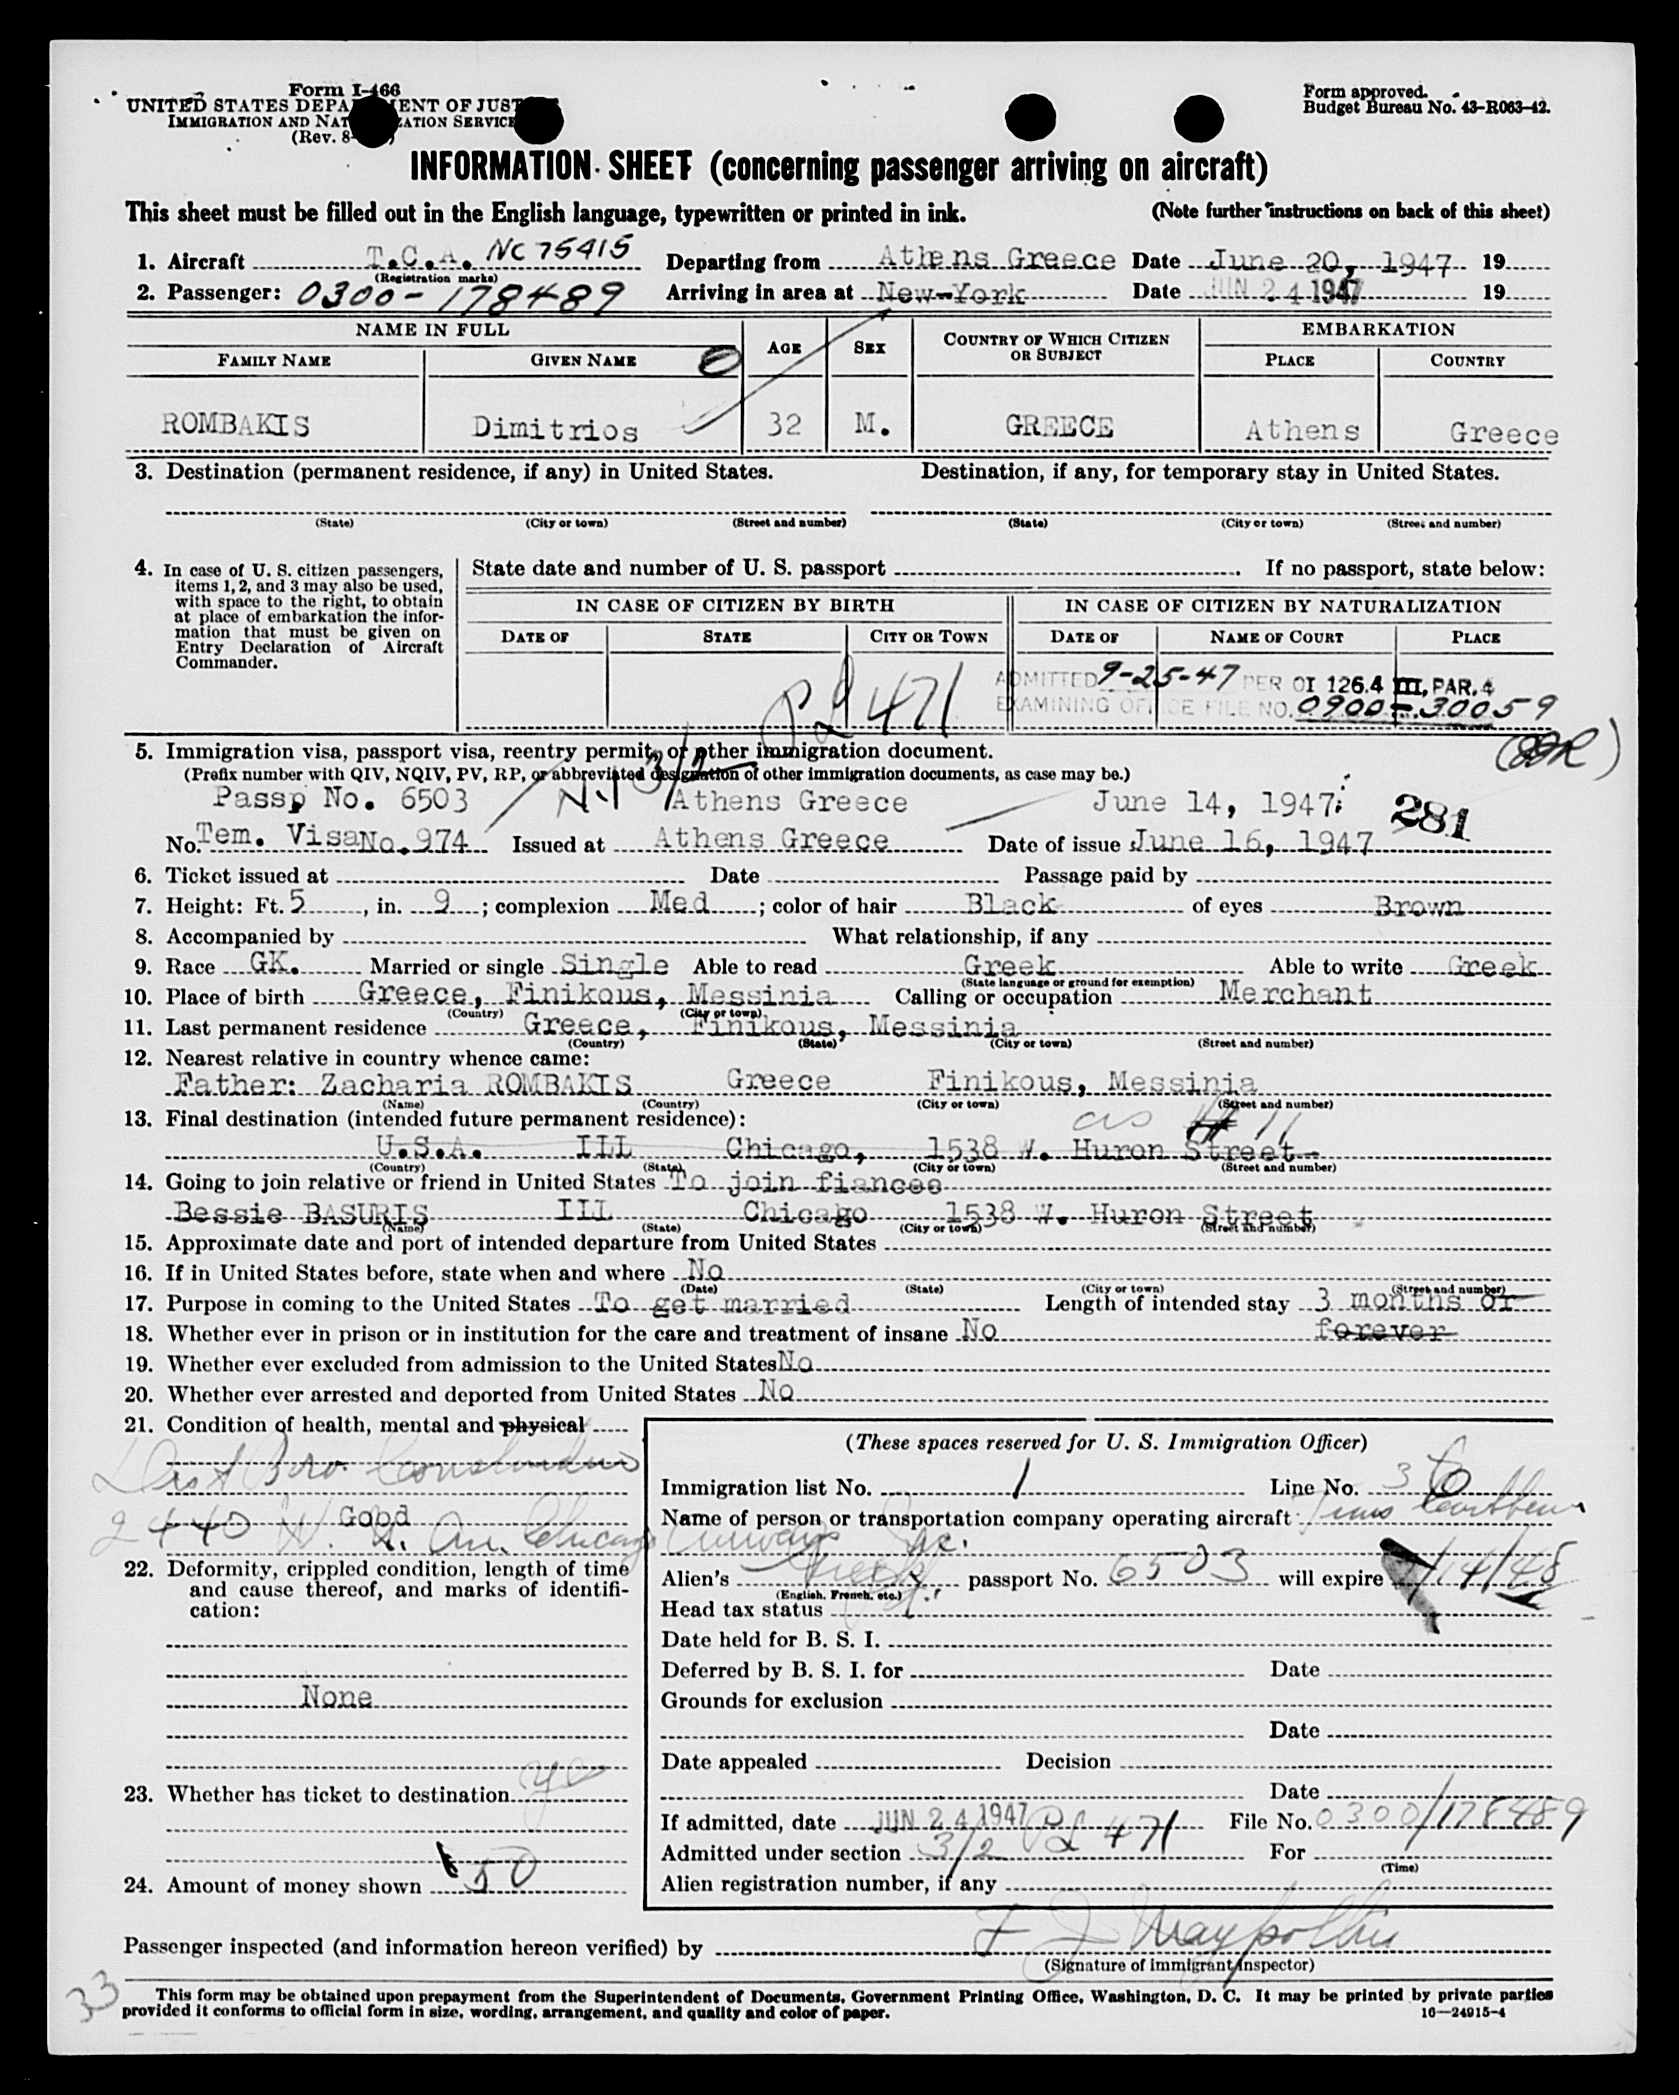 Form I-466
UNITED STATES DEPA ENT OF JUST
IMMIGRATION AND NAT ATION SERVICE
(Rev. 8- )
Form approved.
Budget Bureau No. 43-R063-42.
INFORMATION SHEET (concerning passenger arriving on aircraft)
This sheet must be filled out in the English language, typewritten or printed in ink. (Note further instructions on back of this sheet)
1. Aircraft T.C.A. NC 75415 Departing from Athens Greece Date June 20, 1947 19
(Registration marks)
2. Passenger: 0300-178489 Arriving in area at New-York Date JUN 24 1947 19
NAME IN FULL AGE SEX COUNTRY OF WHICH CITIZEN OR SUBJECT EMBARKATION
FAMILY NAME GIVEN NAME PLACE COUNTRY
ROMBAKIS Dimitrios 32 M. GREECE Athens Greece
3. Destination (permanent residence, if any) in United States. Destination, if any, for temporary stay in United States.
(State) (City or town) (Street and number) (State) (City or town) (Street and number)
4. In case of U. S. citizen passengers, items 1, 2, and 3 may also be used, with space to the right, to obtain at place of embarkation the information that must be given on Entry Declaration of Aircraft Commander.
State date and number of U. S. passport . If no passport, state below:
IN CASE OF CITIZEN BY BIRTH IN CASE OF CITIZEN BY NATURALIZATION
DATE OF STATE CITY OR TOWN DATE OF NAME OF COURT PLACE
PL 471
ADMITTED 9-25-47 PER OI 126.4 III, PAR. 4
EXAMINING OFFICE FILE NO. 0900-30059
5. Immigration visa, passport visa, reentry permit, or other immigration document.
(Prefix number with QIV, NQIV, PV, RP, or abbreviated designation of other immigration documents, as case may be.)
3/2
Passp No. 6503 Athens Greece June 14, 1947
281
No. Tem. Visa No. 974 Issued at Athens Greece Date of issue June 16, 1947
6. Ticket issued at Date Passage paid by
7. Height: Ft. 5, in. 9; complexion Med; color of hair Black of eyes Brown
8. Accompanied by What relationship, if any
9. Race GK. Married or single Single Able to read Greek Able to write Greek
(State language or ground for exemption)
10. Place of birth Greece, Finikous, Messinia Calling or occupation Merchant
(Country) (City or town)
11. Last permanent residence Greece, Finikous, Messinia
(Country) (State) (City or town) (Street and number)
12. Nearest relative in country whence came:
Father: Zacharia ROMBAKIS Greece Finikous, Messinia
(Name) (Country) (City or town) (Street and number)
13. Final destination (intended future permanent residence): as # 11
U.S.A. ILL Chicago, 1538 W. Huron Street
(Country) (State) (City or town) (Street and number)
14. Going to join relative or friend in United States To join fiancee
Bessie BASURIS ILL Chicago 1538 W. Huron Street
(Name) (State) (City or town) (Street and number)
15. Approximate date and port of intended departure from United States
16. If in United States before, state when and where No
(Date) (State) (City or town) (Street and number)
17. Purpose in coming to the United States To get married Length of intended stay 3 months or
forever
18. Whether ever in prison or in institution for the care and treatment of insane No
19. Whether ever excluded from admission to the United States No
20. Whether ever arrested and deported from United States No
21. Condition of health, mental and physical
Good
2440 Chicago
22. Deformity, crippled condition, length of time and cause thereof, and marks of identification:
None
23. Whether has ticket to destination yes
24. Amount of money shown 50
(These spaces reserved for U. S. Immigration Officer)
Immigration list No. 1 Line No. 3
Name of person or transportation company operating aircraft Trans Caribbean
Airways Inc.
Alien's Greek passport No. 6503 will expire /14/48
(English, French, etc.)
Head tax status
Date held for B. S. I.
Deferred by B. S. I. for Date
Grounds for exclusion
Date
Date appealed Decision
Date
If admitted, date JUN 24 1947 File No. 0300/178489
Admitted under section 3/2 PL 471 For
(Time)
Alien registration number, if any
Passenger inspected (and information hereon verified) by
(Signature of Immigrant Inspector)
33
This form may be obtained upon prepayment from the Superintendent of Documents, Government Printing Office, Washington, D. C. It may be printed by private parties
provided it conforms to official form in size, wording, arrangement, and quality and color of paper. 16—24915-4